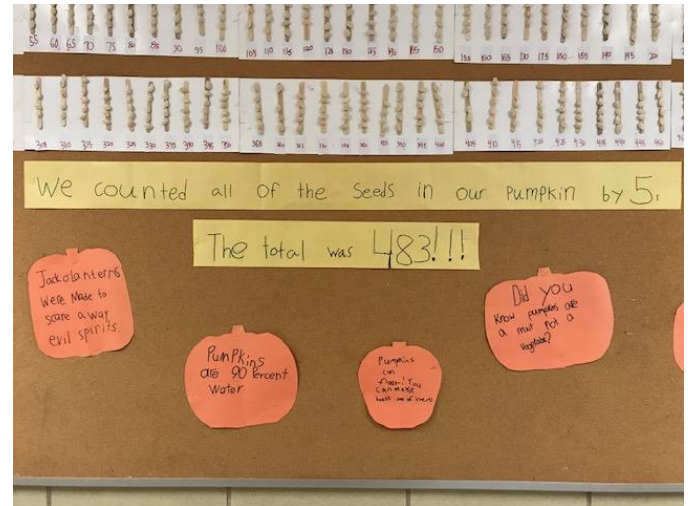 55 60 65 70 75 80 85 90 95 100
105 110 115 120 125 130 135 140 145 150
155 160 165 170 175 180 185 190 195 200
305 310 315 320 325 330 335 340 345 350
405 410 415 420 425 430 435 440 445 450
We counted all of the Seeds in our Pumpkin by 5s
The total was 483!!!
Jackolanterns
Were Made to
scare away
evil spirits.
PumPkins
are 90 Percent
Water
Pumpkins
can
float! You
can make
Did you
Know pumpkins are
a fruit not a
vegetable?